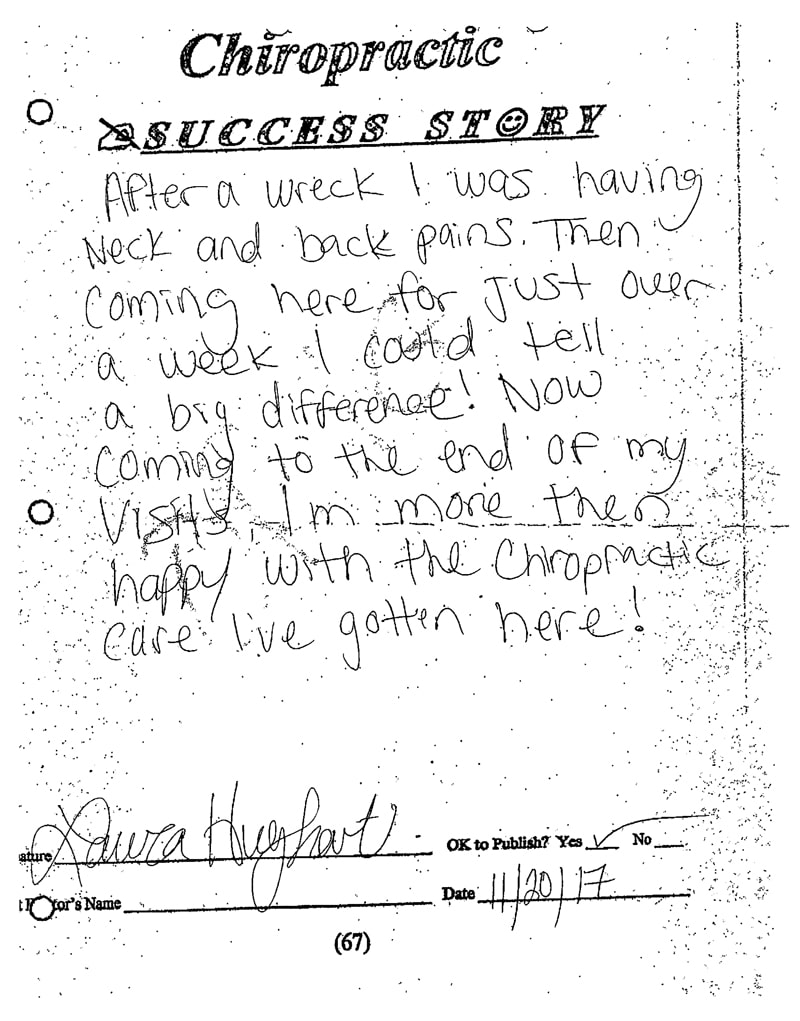 Chiropractic
SUCCESS STORY
After a wreck I was having
Neck and back pains. Then
Coming here for just over
a week I could tell
a big difference! Now
coming to the end of my
visits, I'm more then
happy with the Chiropractic
care I've gotten here!
ature Laura Hughart OK to Publish? Yes ✓ No
tor's Name Date 11/20/17
(67)